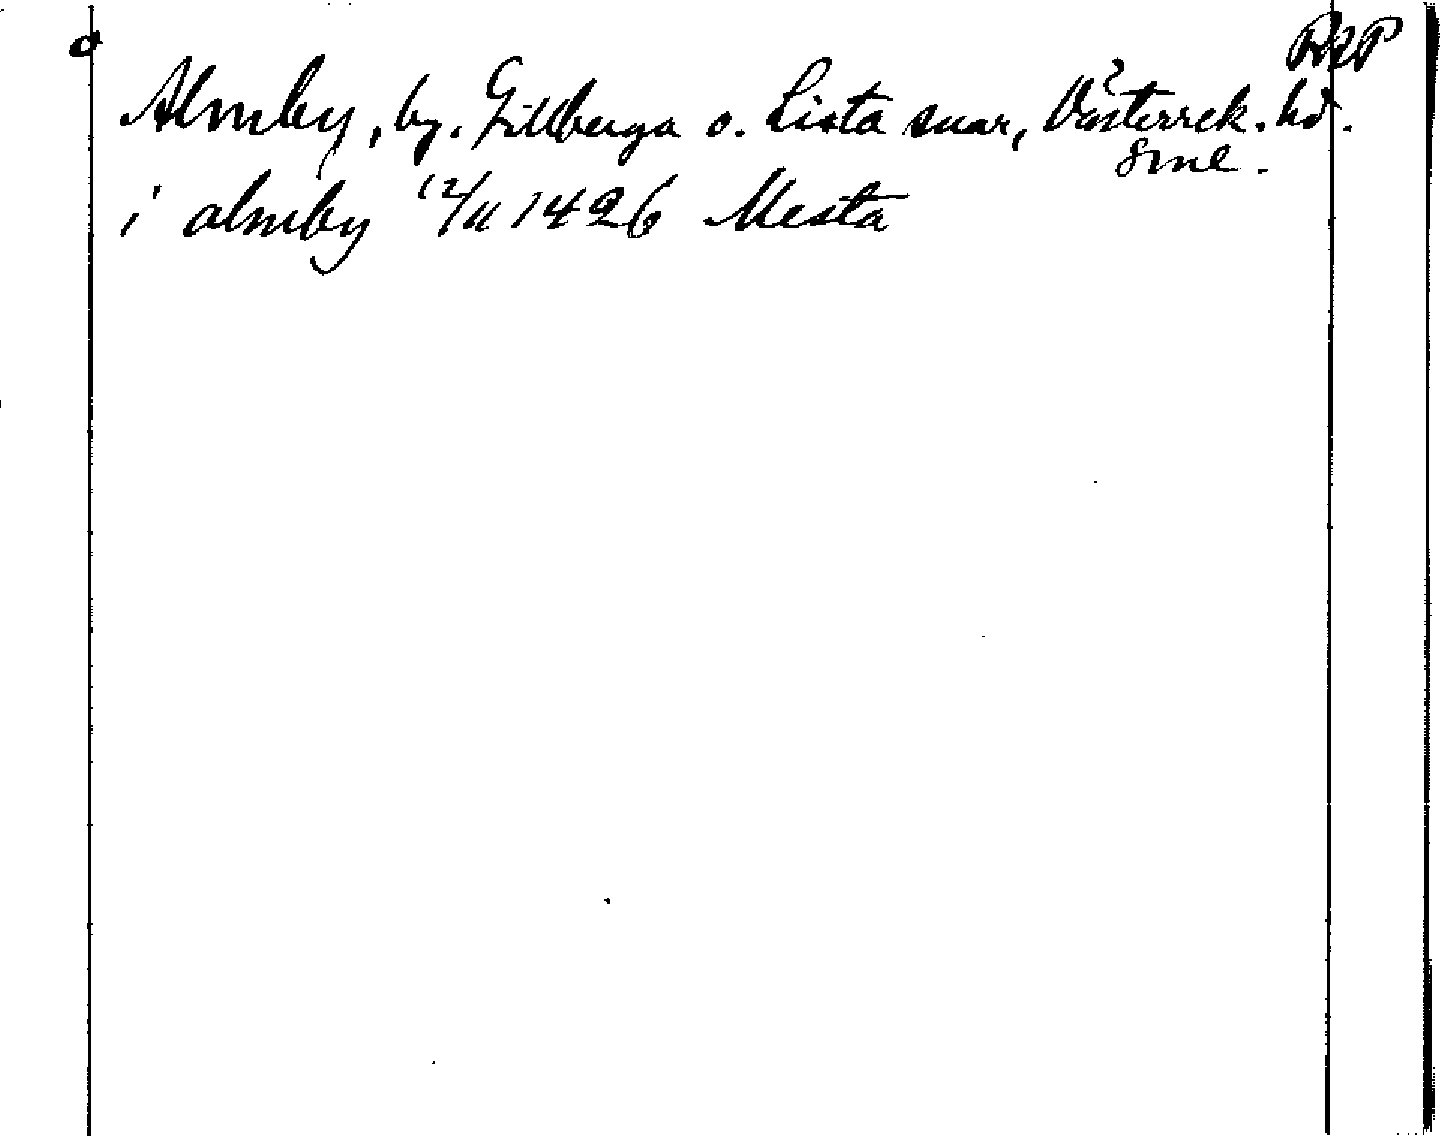 RAP
Almby, by. Gillberga o. Lista snar, Västerrek. hd.
Sml.
i almby 12/11 1426 Mesta